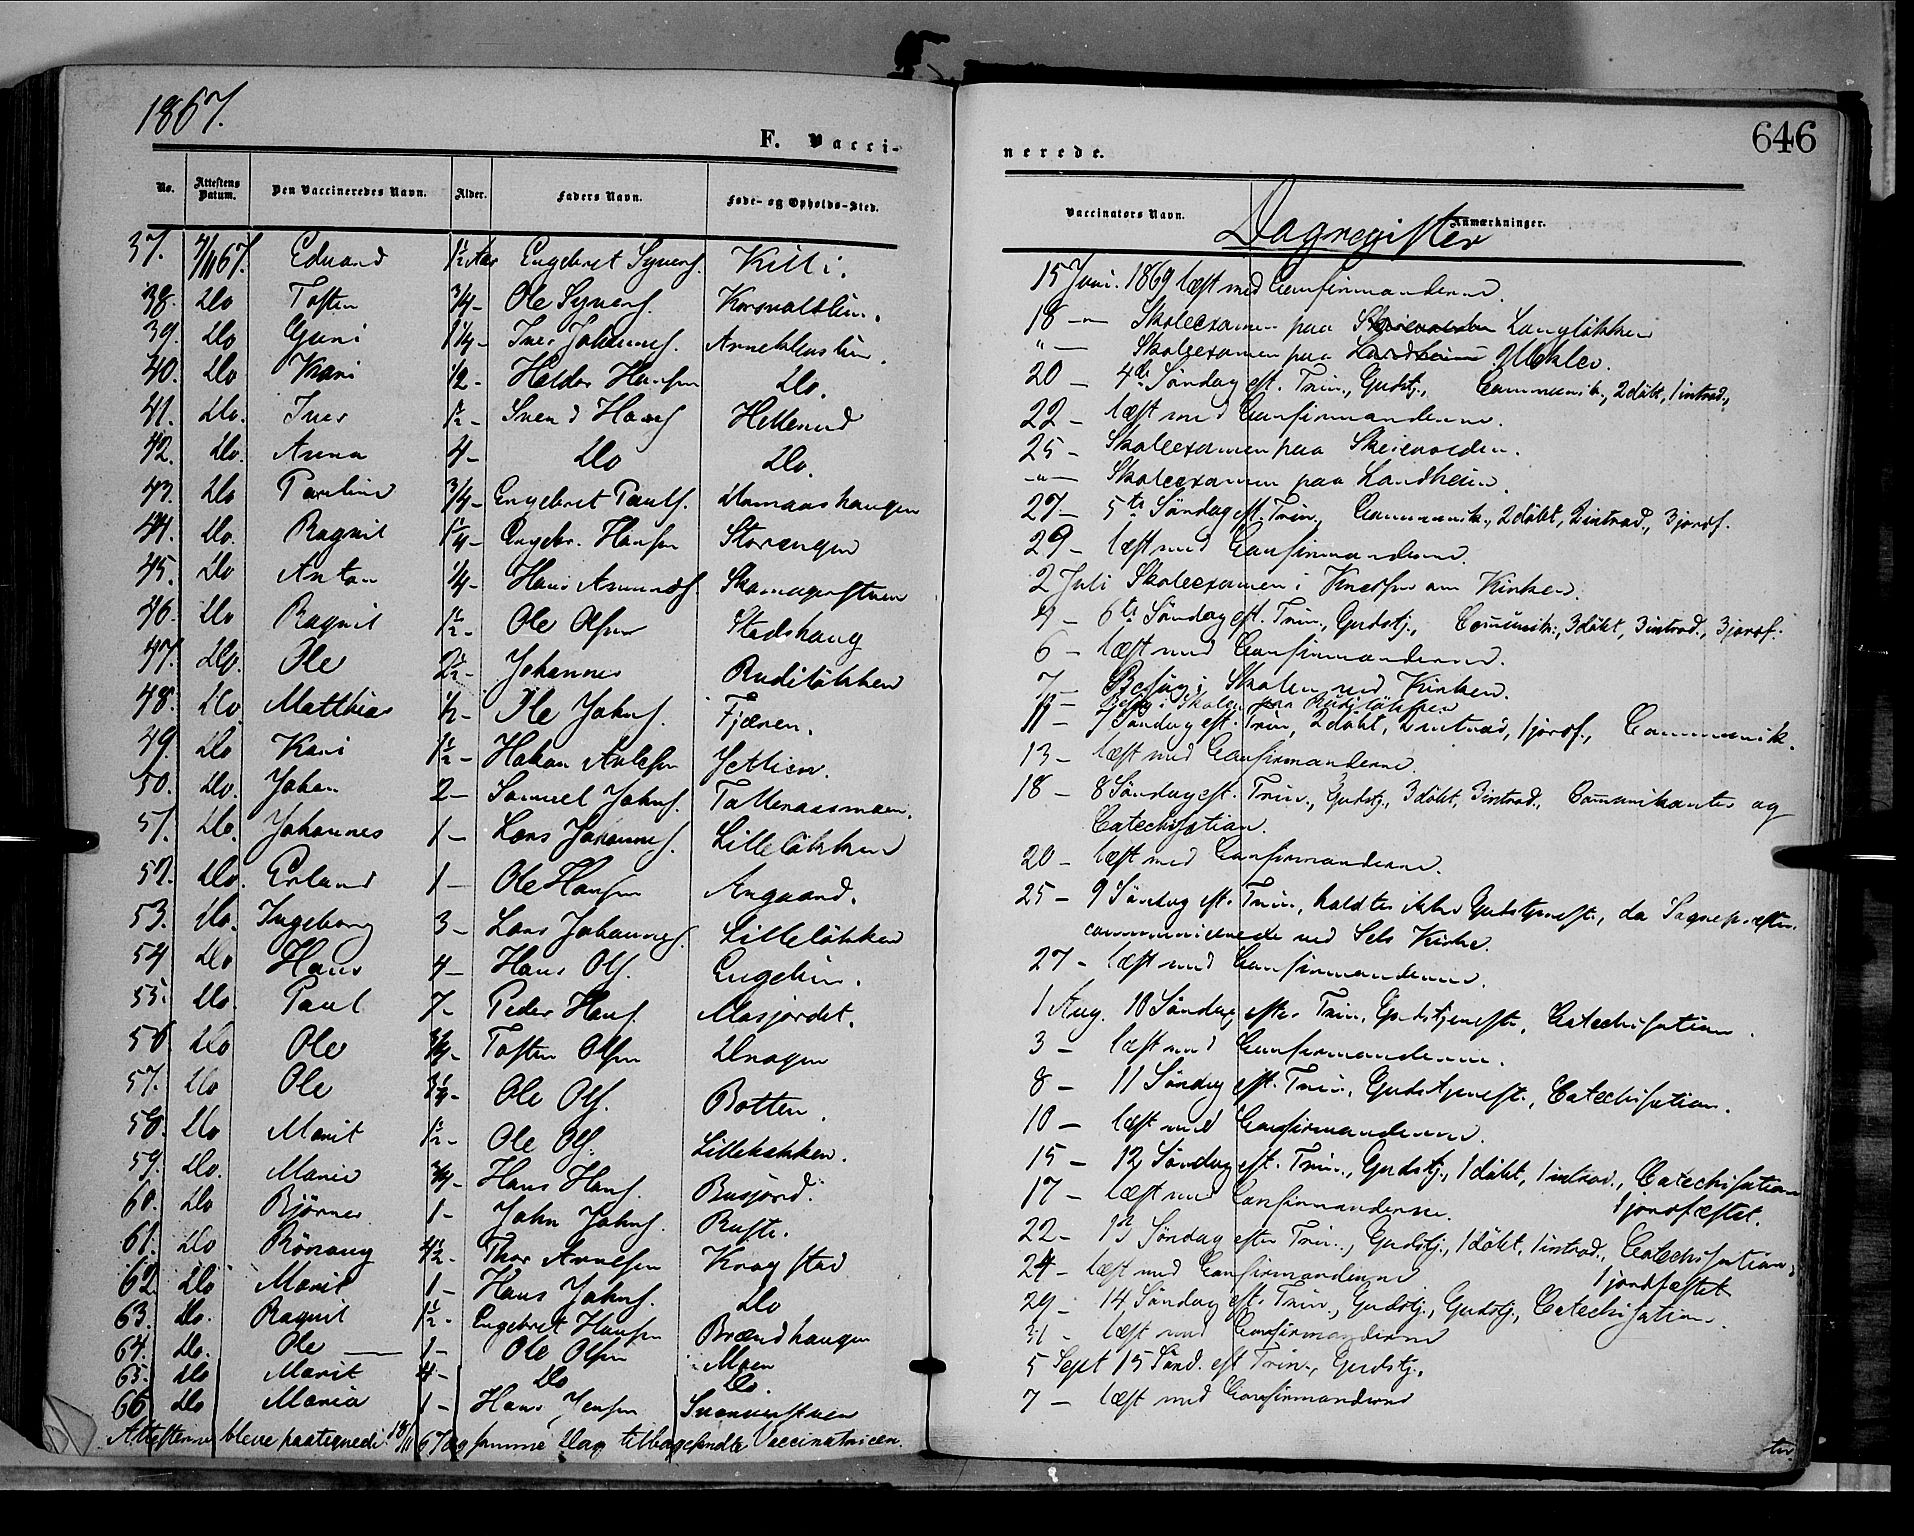 1867.
F. Vacci-
No. Attestens Datum. Den Vaccineredes Navn. Alder. Faders Navn. Føde- og Opholds-Sted.
37. 7/11 67. Edvard 1½ Aar Engebret Syvers. Killi.
38. Do Tosten ¾- Ole Syvers.
39. Do Guni 1¼- Iver Johannes.
40. Do Kari ½- Haldor Hansen Do.
41. Do. Iver ½- Svend Hans. Hellerud
42. Do. Anna 4- Do Do.
43. Do Pauline ¾- Engebret Pauls.
44. Do. Ragnil Engebr. Hansen Storengen
45. Do Anton ¼- Hans Asmunds.
46. Do Ragnil 1½- Ole Olsen Stadshaug
47. Do. Ole 2½- Johannes Rudiløkken
48. Do Matthias ½- Ole Johns. Fjæren.
49. Do Kari 1½- Hakon Avlesen
50. Do. Johan 2- Samuel Johns.
51. Do. Johannes 1- Lars Johannes. Lilleløkken
52. Do. Erland 1- Ole Hansen Angaard.
53. Do. Ingeborg 3- Lars Johannes. Lilleløkken
54 Do Hans 4- Hans Ols. Engelien.
55. Do. Paul 7- Peder Hans. Masjordet.
56. Do Ole ¾- Tosten Olsen
57. Do Ole Ole Ols. Botten.
58. Do Marit 1½- Ole Ols. Lillebakken.
59. Do. Marie ¾- Hans Hans. Busjord.
60. Do Bjørner 1- John Johns. Ruste.
61. Do Rønnaug 4½- Thor Arnesen Kragstad
62. Do Marit 1- Hans Johns. Do
63. Do. Ragnil 1½- Engebret Hansen Brændhaugen
64. Do. Ole 1- Ole Olsen Moen
65. Do Marit 4- Do Do.
66 Do Maria 1- Hans Jensen
Attesterne bleve paategnede 18/11 67 og samme Dag tilbagesendte Vaccinatricen.
nerede.
646
Vaccinators Navn. Anmærkninger.
Dagregister
15 Juni. 1869 læst med Confirmanderne.
18 -"- Skoleexamen paa Langløkken
" - Skoleexamen paa
20 - 4de Søndag eft. Trin., Gudstj., Communik., 2 døbt, 1 introd.,
22 - læst med Confirmanderne.
25 - Skoleexamen paa Skeievolden.
-"- Skoleexamen paa Landheim.
27 - 5te Søndag eft. Trin., Communik., 2 døbt, 2 introd., 3 jordf.
29 - læst med Confirmanderne.
2 Juli Skoleexamen i Kredsen om Kirken.
4 - 6te Søndag eft. Trin., Gudstj., Communik., 3 døbt, 3 introd., 3 jordf.
6 - læst med Confirmanderne.
7 - Besøg i Skolen ved Kirken.
Besøg i Skolen paa Rudiløkken
11 - 7 Søndag eft. Trin, 2 døbt, 2 introd, 1 jordf., Communik.
13 - læst med Confirmanderne.
18 - 8 Søndag eft. Trin., Gudstj., 3 døbt, 3 introd., Communikanter og
Catechisation.
20 - læst med Confirmanderne.
25 - 9 Søndag eft. Trin., holdtes ikke Gudstjenest., da Sognepresten
communicerede ved Sels Kirke.
27 - læst med Confirmanderne.
1 Aug. 10 Søndag efter Trin., Gudstjeneste, Catechisation.
3 - læst med Confirmanderne.
8 - 11 Søndag eft. Trin., Gudstjenest., Catechisation.
10 - læst med Confirmanderne.
15 - 12 Søndag eft. Trin., Gudstj., 1 døbt, 1 introd., Catechisation
1 jordfæstet.
17 - læst med Confirmanderne.
22 - 13 Søndag efter Trin., Gudstj., 1 døbt, 1 introd., Catechisation,
1 jordfæstet
24 - læst med Confirmanderne
29 - 14 Søndag eft. Trin., Gudstj., Gudstj., Catechisation.
31 - læst med Confirmanderne
5 Sept 15 Sønd. eft Trin., Gudstj.
7 - læst med Confirmanderne